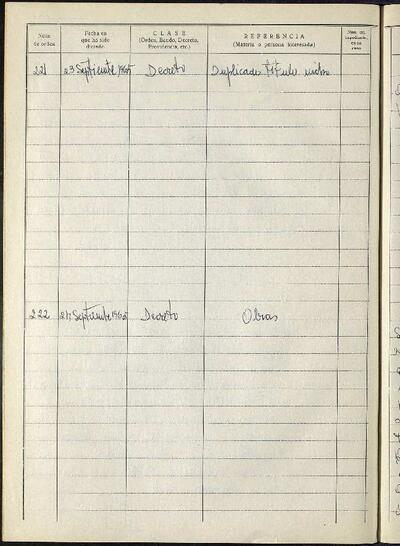 Núm. de orden
Fecha en que ha sido dictado
CLASE (Orden, Bando, Decreto, Providencia, etc.)
REFERENCIA (Materia o persona interesada)
Núm. del expediente, en su caso
221 23 Septiembre 1965 Decreto Duplicado Título nicho
222 Septiembre 1965 Decreto Obras